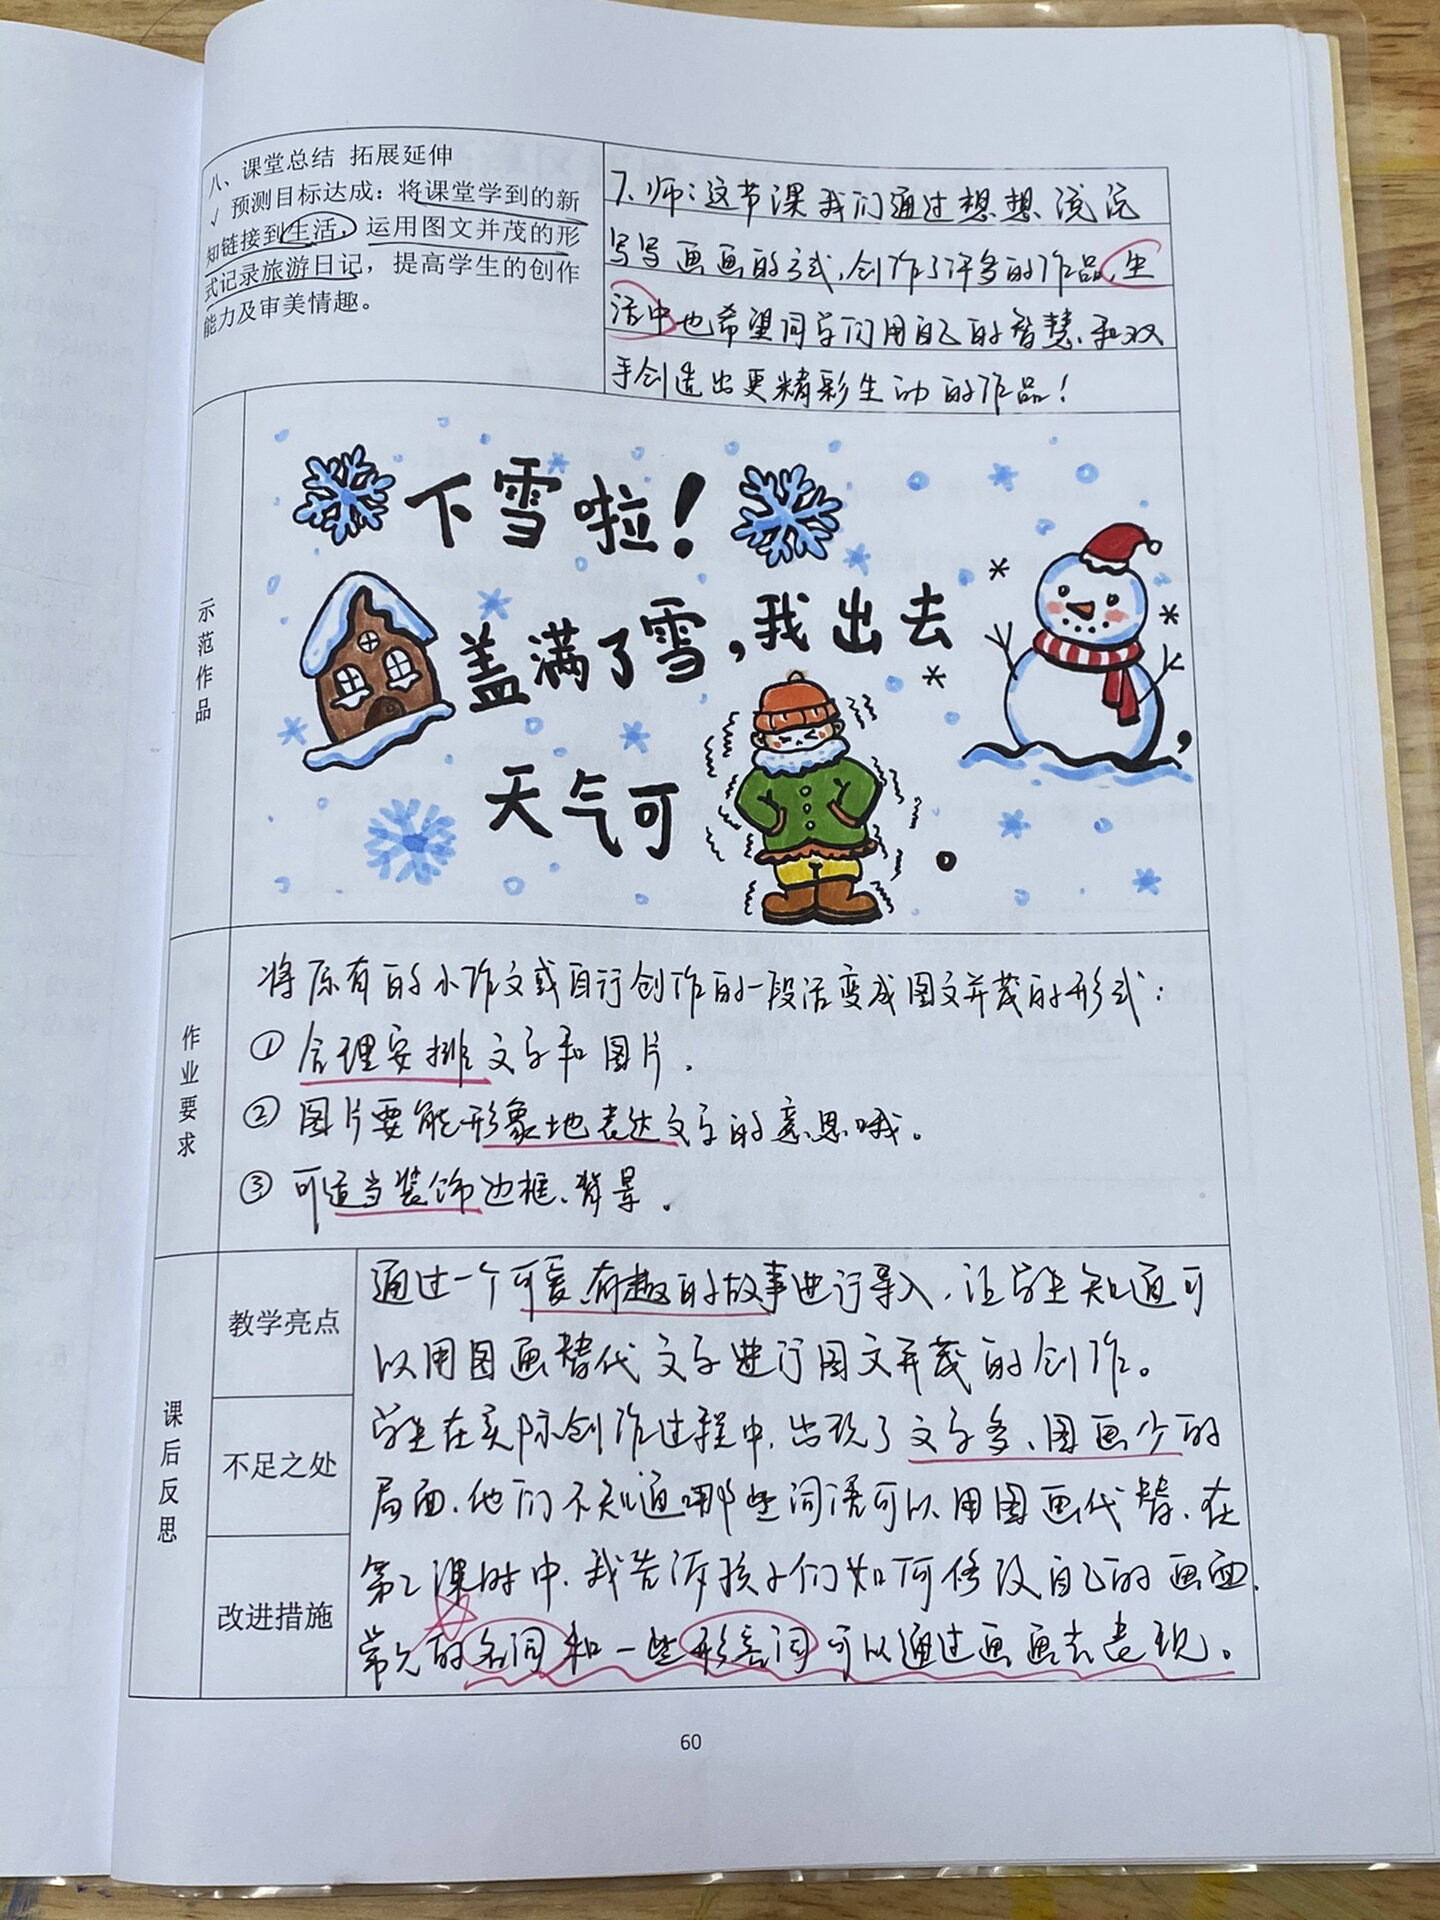 八、课堂总结 拓展延伸
√ 预测目标达成：将课堂学到的新
知链接到生活，运用图文并茂的形
式记录旅游日记，提高学生的创作
能力及审美情趣。
7、师：这节课我们通过想想说说
写写画画的方式，创作了许多的作品，生
活中也希望同学们用自己的智慧和双
手创造出更精彩生动的作品！
示范作品
下雪啦！
盖满了雪，我出去
，
天气可
。
作业要求
将原有的小作文或自行创作的一段话变成图文并茂的形式：
① 合理安排文字和图片。
② 图片要能形象地表达文字的意思哦。
③ 可适当装饰边框、背景。
课后反思
教学亮点
通过一个可爱、有趣的故事进行导入，让学生知道可
以用图画替代文字进行图文并茂的创作。
不足之处
学生在实际创作过程中，出现了文字多、图画少的
局面，他们不知道哪些词语可以用图画代替，在
改进措施
第2课时中，我告诉孩子们如何修改自己的画面，
常见的名词和一些形容词可以通过画画去表现。
60